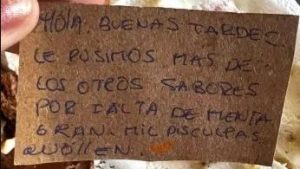 HOlA. BUENAS TARDES.
LE PUSIMOS MAS DE
LOS OTROS SABORES
POR FALTA DE MENTA
GRAN. MIL DISCULPAS